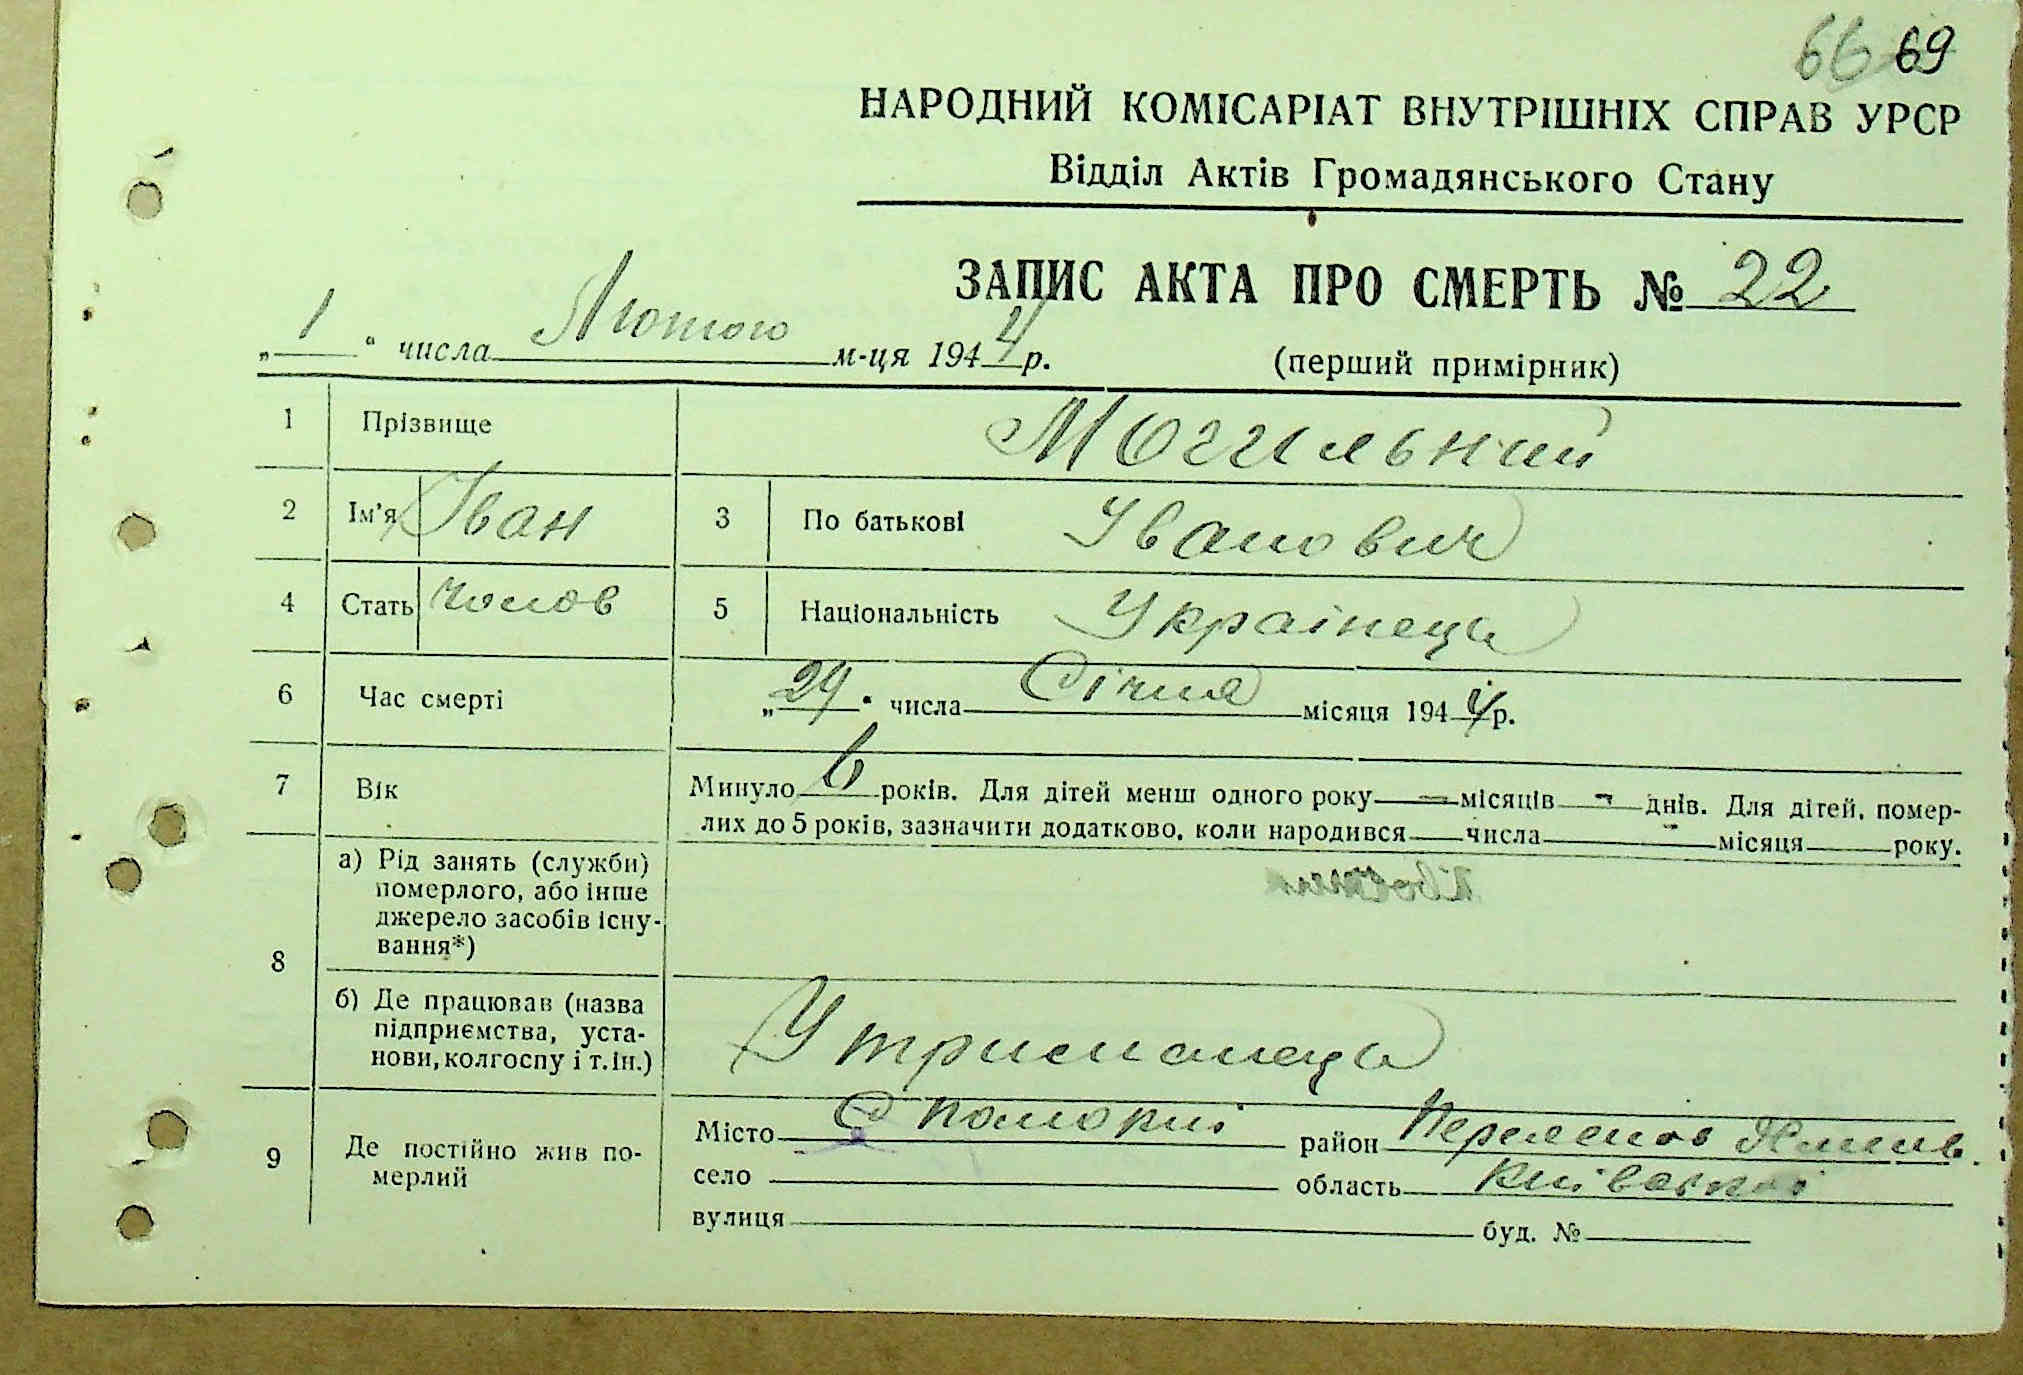 66 69
НАРОДНИЙ КОМІСАРІАТ ВНУТРІШНІХ СПРАВ УРСР
Відділ Актів Громадянського Стану
ЗАПИС АКТА ПРО СМЕРТЬ № 22
„ 1 “ числа Лютого м-ця 1944 р.
(перший примірник)
1 Прізвище Могильний
2 Ім'я Іван 3 По батькові Іванович
4 Стать чолов 5 Національність Українець
6 Час смерті „ 29 “ числа Січня місяця 1944 р.
7 Вік Минуло 6 років. Для дітей менш одного року — місяців - днів. Для дітей, помер-
лих до 5 років, зазначити додатково, коли народився числа - місяця року.
8 а) Рід занять (служби)
померлого, або інше
джерело засобів існу-
вання*)
б) Де працював (назва
підприємства, уста-
нови, колгоспу і т.ін.) Утриманець
9 Де постійно жив по-
мерлий
Місто С район
село область Київської
вулиця буд. №